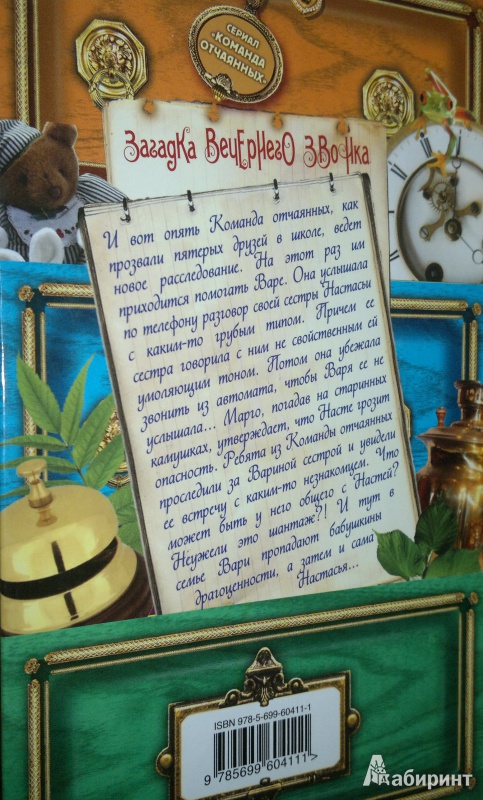 СЕРИАЛ
«КОМАНДА
ОТЧАЯННЫХ»
ЗАГАДКА ВЕЧЕРНЕГО ЗВОНКА
И вот опять Команда отчаянных, как
прозвали пятерых друзей в школе, ведет
новое расследование. На этот раз им
приходится помогать Варе. Она услышала
по телефону разговор своей сестры Настасьи
с каким-то грубым типом. Причем ее
сестра говорила с ним не свойственным ей
умоляющим тоном. Потом она убежала
звонить из автомата, чтобы Варя ее не
услышала... Марго, погадав на старинных
камушках, утверждает, что Насте грозит
опасность. Ребята из Команды отчаянных
проследили за Вариной сестрой и увидели
ее встречу с каким-то незнакомцем. Что
может быть у него общего с Настей?
Неужели это шантаж?! И тут в
семье Вари пропадают бабушкины
драгоценности, а затем и сама
Настасья...
ISBN 978-5-699-60411-1
9 785699 604111 >
Лабиринт